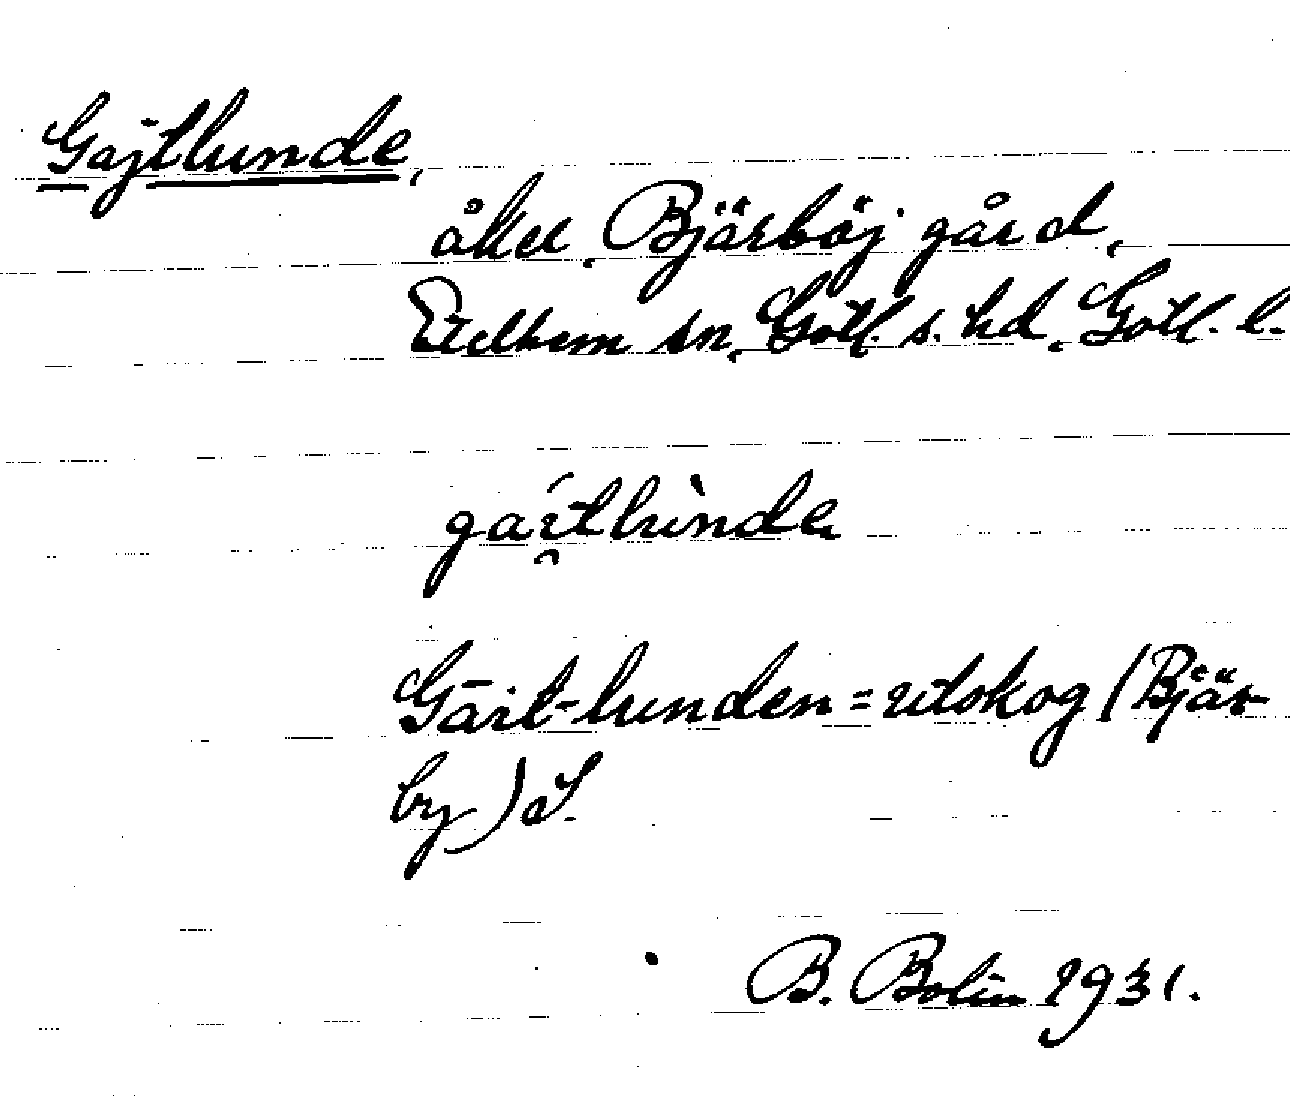 Gajtlunde,
åker, Bjärböj gård,
Etelhem sn, Gotl. s. hd, Gotl. l.
gai̯tlùnde
Gāit-lunden = utskog (Bjär-
by) aS.
B. Bolin 1931.